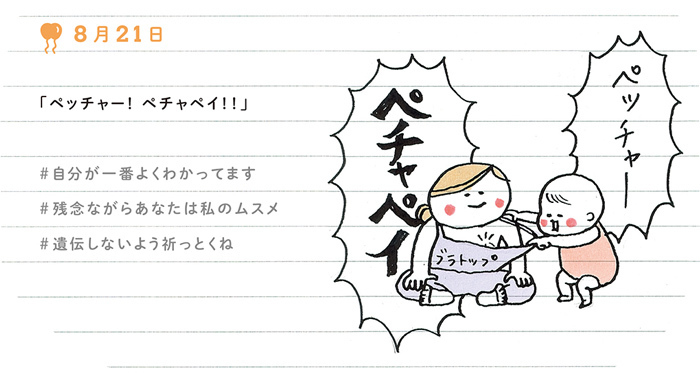 8月21日
「ペッチャー! ペチャペイ!!」
#自分が一番よくわかってます
#残念ながらあなたは私のムスメ
#遺伝しないよう祈っとくね
ペッチャー
ペチャペイ
ブラトップ